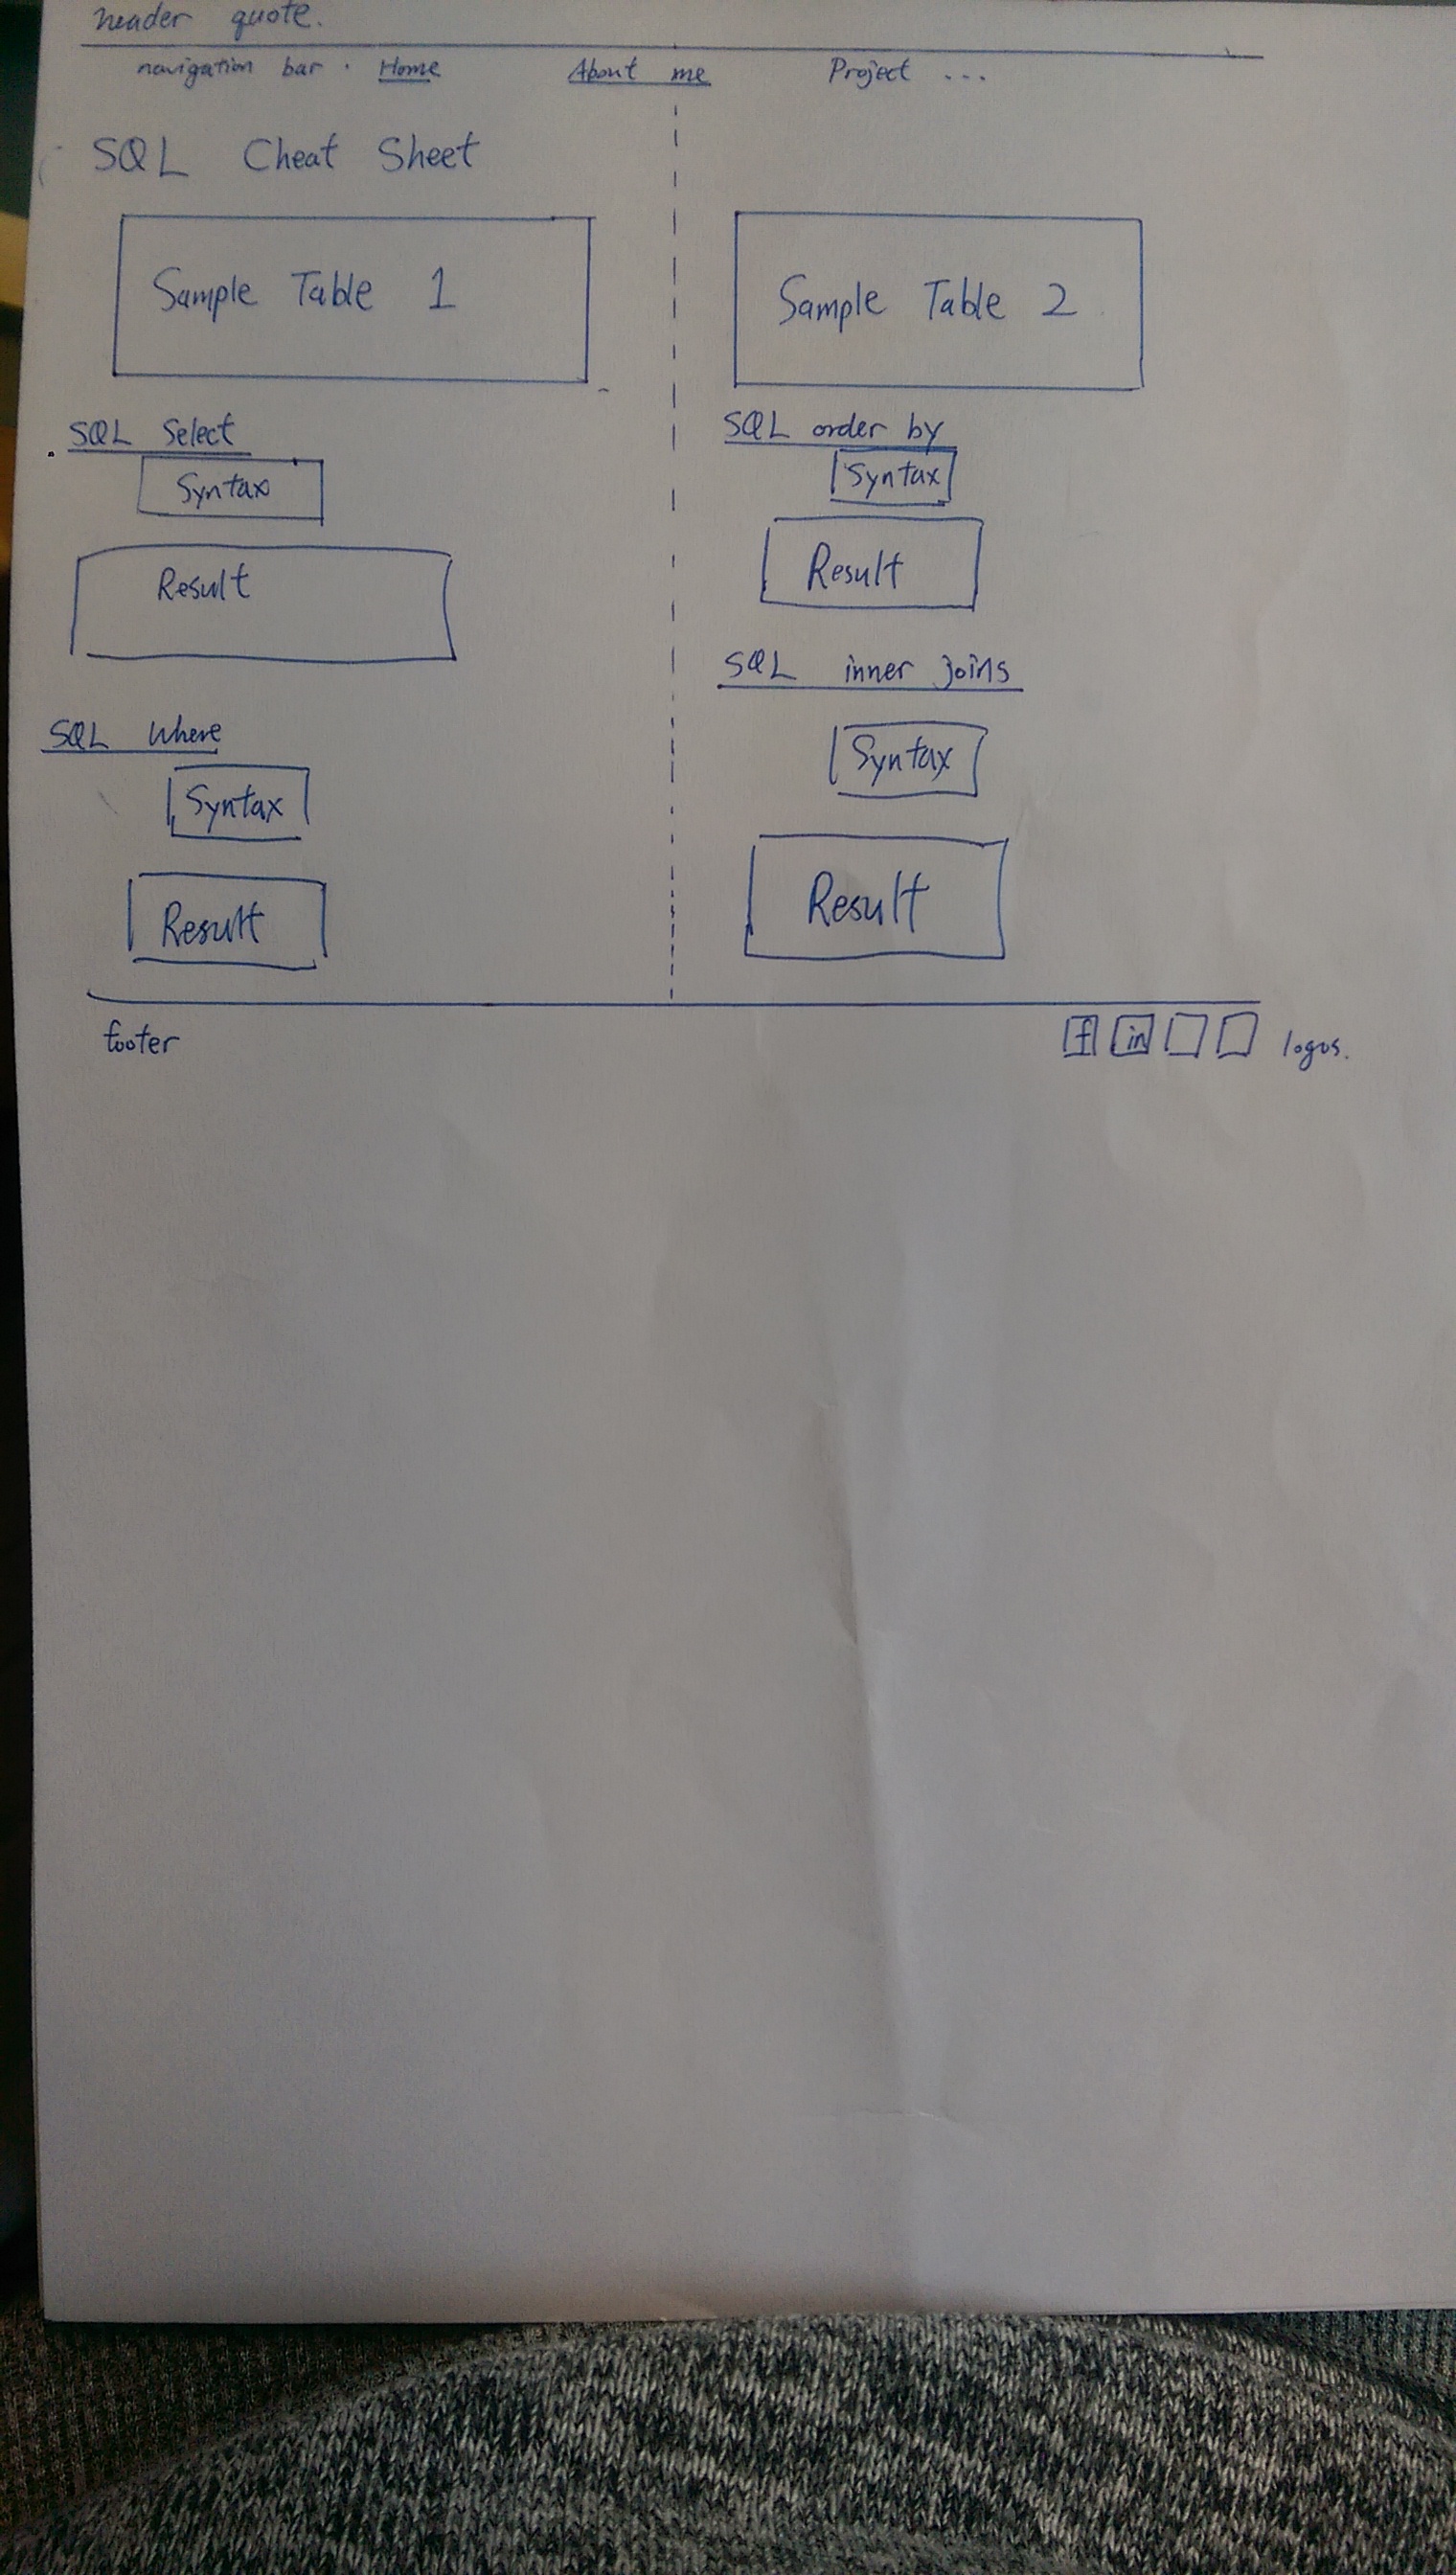 header quote.
navigation bar . Home About me Project ...
SQL Cheat Sheet
Sample Table 1
Sample Table 2
SQL Select
Syntax
Result
SQL Where
Syntax
Result
SQL order by
Syntax
Result
SQL inner joins
Syntax
Result
footer
f in logos.